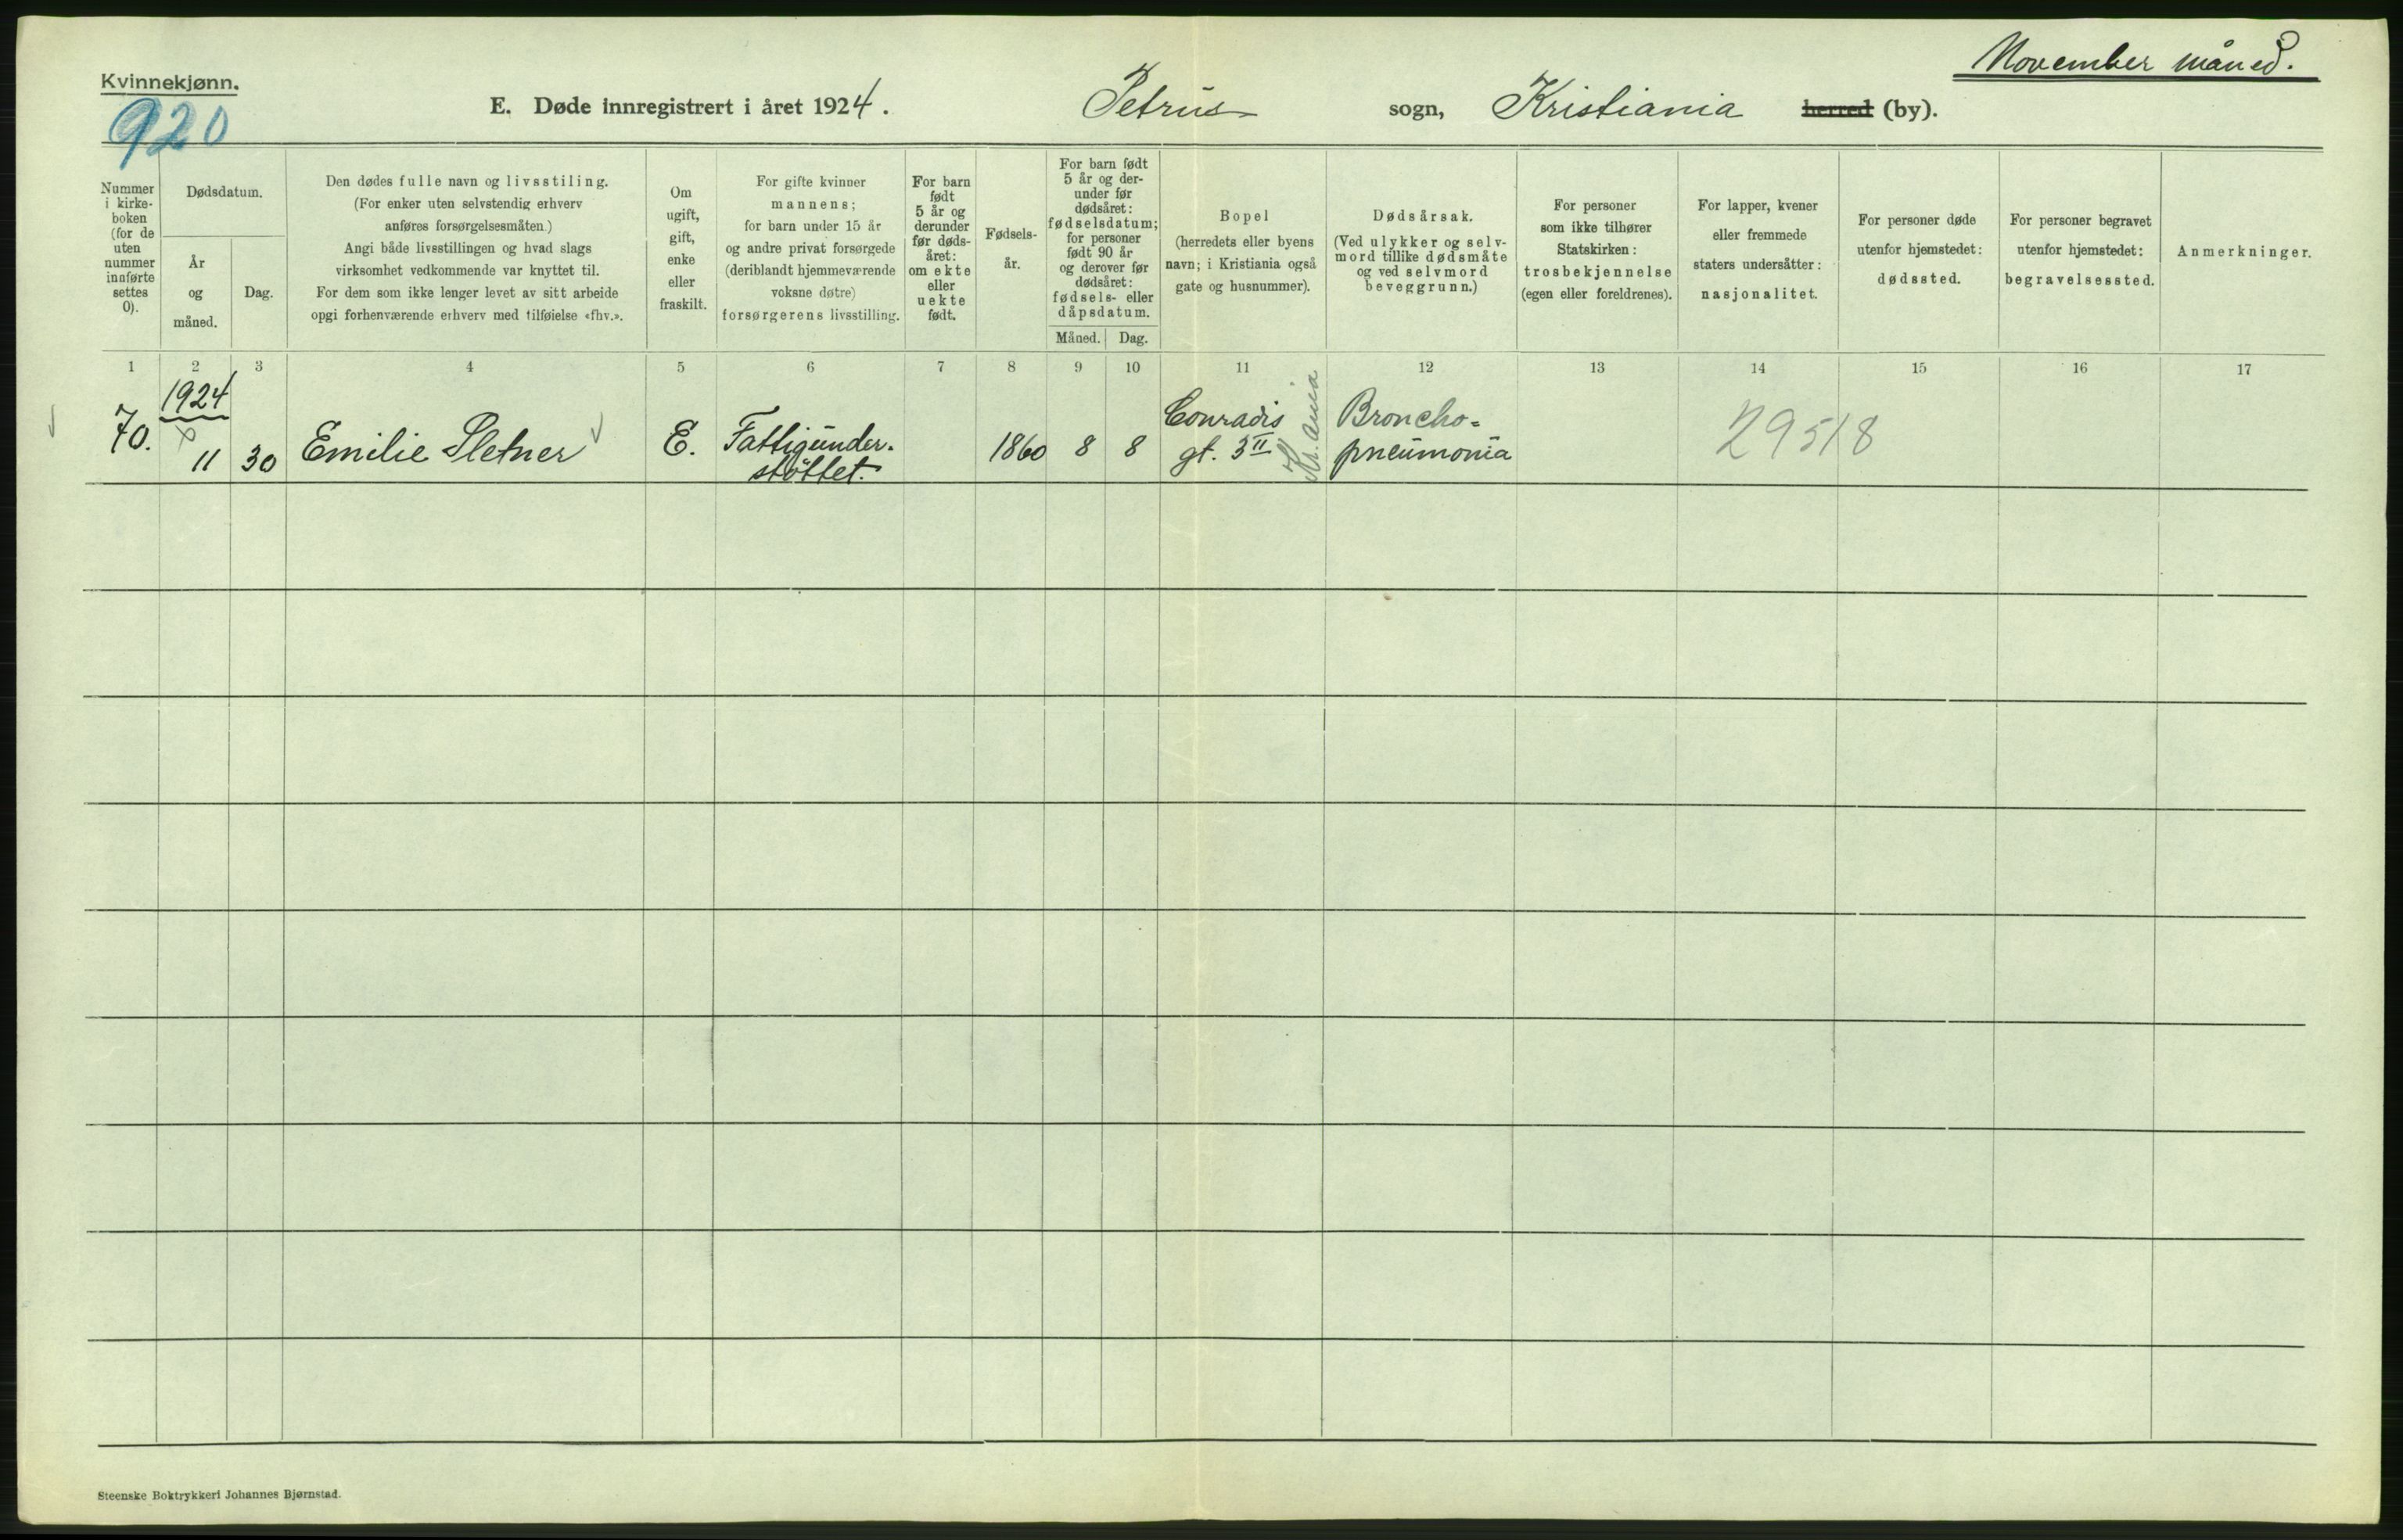 November måned.
Kvinnekjønn.
920
E. Døde innregistrert i året 1924. Petrus sogn, Kristiania herred (by).
Nummer
i kirke-
boken
(for de
uten
nummer
innførte
settes
0).
Dødsdatum.
År
og
måned.
Dag.
Den dødes fulle navn og livsstiling.
(For enker uten selvstendig erhverv
anføres forsørgelsesmåten.)
Angi både livsstillingen og hvad slags
virksomhet vedkommende var knyttet til.
For dem som ikke lenger levet av sitt arbeide
opgi forhenværende erhverv med tilføielse «fhv.».
Om
ugift,
gift,
enke
eller
fraskilt.
For gifte kvinner
mannens;
for barn under 15 år
og andre privat forsørgede
(deriblandt hjemmeværende
voksne døtre)
forsørgerens livsstilling.
For barn
født
5 år og
derunder
før døds-
året:
om ekte
eller
uekte
født.
Fødsels-
år.
For barn født
5 år og der-
under før
dødsåret:
fødselsdatum;
for personer
født 90 år
og derover før
dødsåret:
fødsels- eller
dåpsdatum.
Måned. Dag.
Bopel
(herredets eller byens
navn; i Kristiania også
gate og husnummer).
Dødsårsak.
(Ved ulykker og selv-
mord tillike dødsmåte
og ved selvmord
beveggrunn.)
For personer
som ikke tilhører
Statskirken:
trosbekjennelse
(egen eller foreldrenes).
For lapper, kvener
eller fremmede
staters undersåtter:
nasjonalitet.
For personer døde
utenfor hjemstedet:
dødssted.
For personer begravet
utenfor hjemstedet:
begravelsessted.
Anmerkninger.
1 2 3 4 5 6 7 8 9 10 11 12 13 14 15 16 17
1924
70. 11 30 Emilie Sletner E. Fattigunder-
støttet. 1860 8 8 Conradis
gt. 3 II Kr.ania Broncho-
pneumonia 29518
Steenske Boktrykkeri Johannes Bjørnstad.